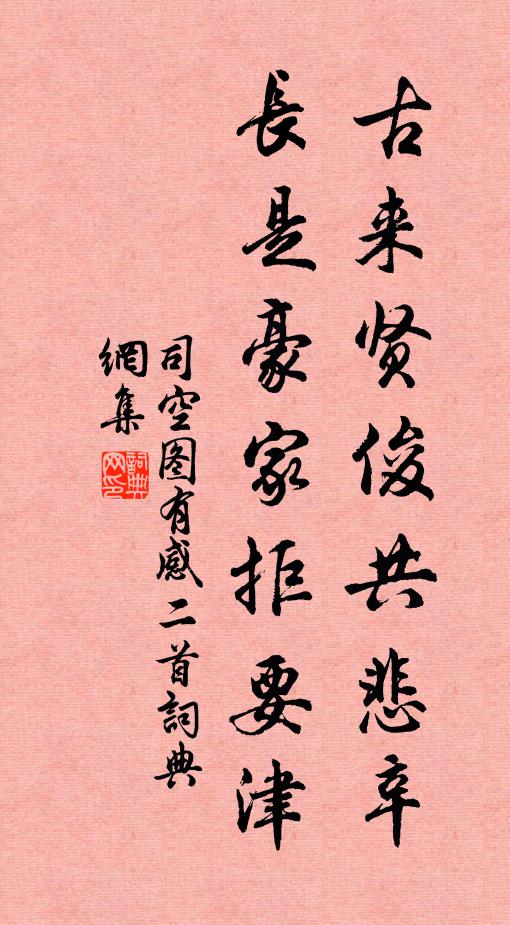 古来贤俊共悲辛
長是豪家拒要津
司空图有感二首詞典
網集
詞典
网印